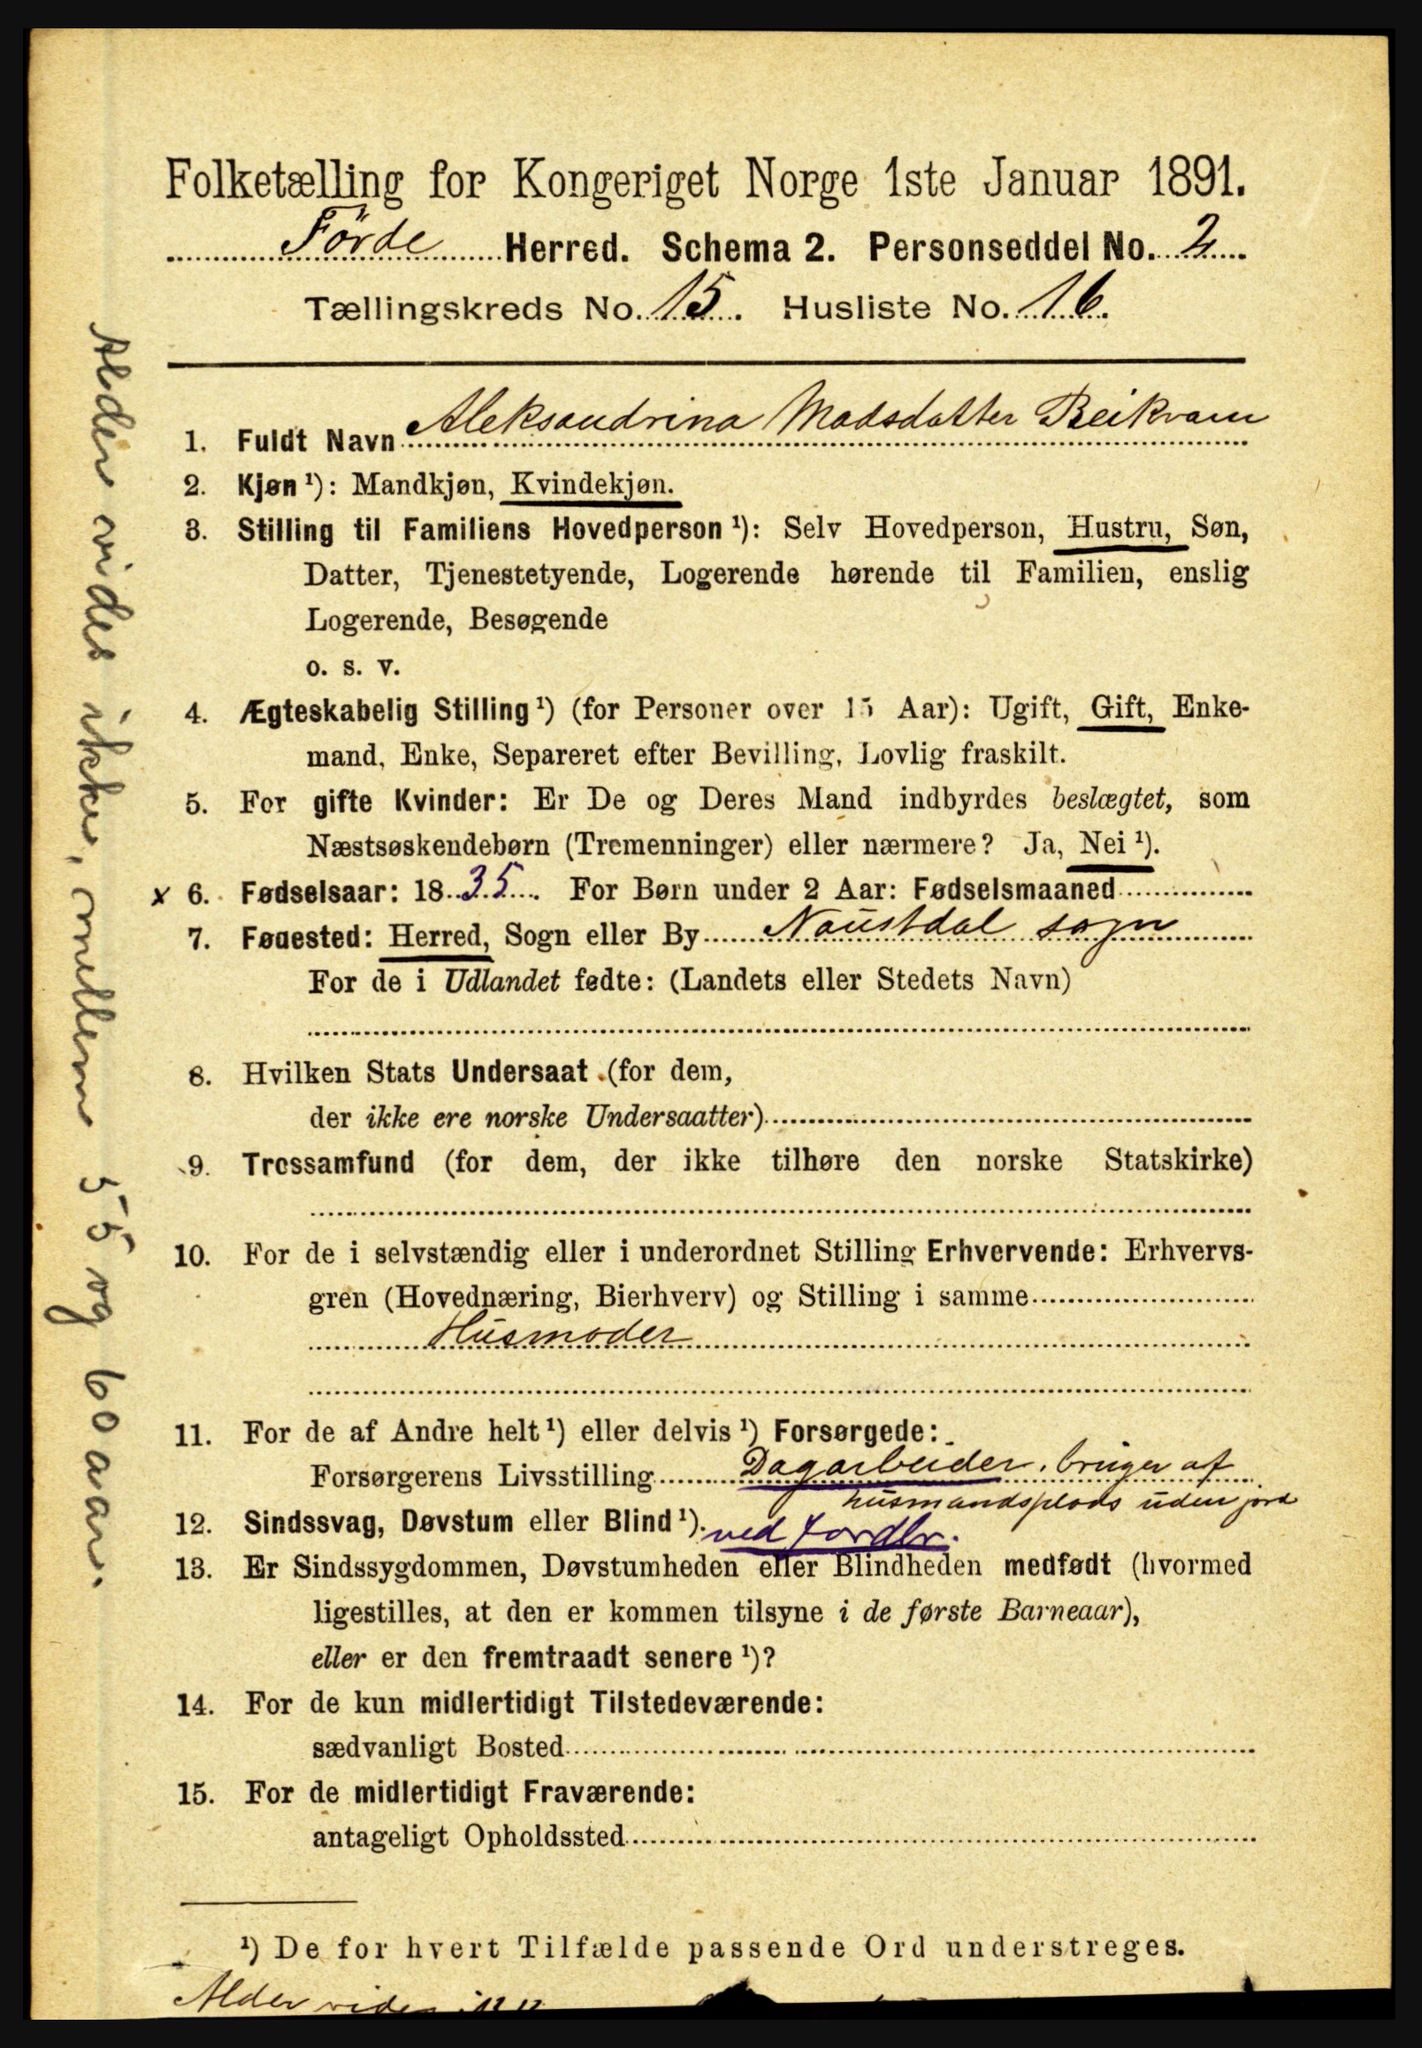 Folketælling for Kongeriget Norge 1ste Januar 1891.
Förde Herred. Schema 2. Personseddel No. 2
Tællingskreds No. 15. Husliste No. 16.
1. Fuldt Navn Aleksandrina Madsdatter Beikvam
2. Kjøn ¹): Mandkjøn, Kvindekjøn.
3. Stilling til Familiens Hovedperson ¹): Selv Hovedperson, Hustru, Søn,
Datter, Tjenestetyende, Logerende hørende til Familien, enslig
Logerende, Besøgende
o. s. v.
4. Ægteskabelig Stilling ¹) (for Personer over 15 Aar): Ugift, Gift, Enke-
mand, Enke, Separeret efter Bevilling, Lovlig fraskilt.
5. For gifte Kvinder: Er De og Deres Mand indbyrdes beslægtet, som
Næstsøskendebørn (Tremenninger) eller nærmere? Ja, Nei ¹).
x 6. Fødselsaar: 1835. For Børn under 2 Aar: Fødselsmaaned
7. Fødested: Herred, Sogn eller By Naustdal sogn
For de i Udlandet fødte: (Landets eller Stedets Navn)
8. Hvilken Stats Undersaat (for dem,
der ikke ere norske Undersaatter)
9. Trossamfund (for dem, der ikke tilhøre den norske Statskirke)
10. For de i selvstændig eller i underordnet Stilling Erhvervende: Erhvervs-
gren (Hovednæring, Bierhverv) og Stilling i samme
Husmoder
11. For de af Andre helt ¹) eller delvis ¹) Forsørgede:
Forsørgerens Livsstilling Dagarbeider, bruger af
husmandsplads uden jord
12. Sindssvag, Døvstum eller Blind ¹). ved Jordbr.
13. Er Sindssygdommen, Døvstumheden eller Blindheden medfødt (hvormed
ligestilles, at den er kommen tilsyne i de første Barneaar),
eller er den fremtraadt senere ¹)?
14. For de kun midlertidigt Tilstedeværende:
sædvanligt Bosted
15. For de midlertidigt Fraværende:
antageligt Opholdssted
¹) De for hvert Tilfælde passende Ord understreges.
Alder vides
Alder vides ikke, mellem 55 og 60 aar.